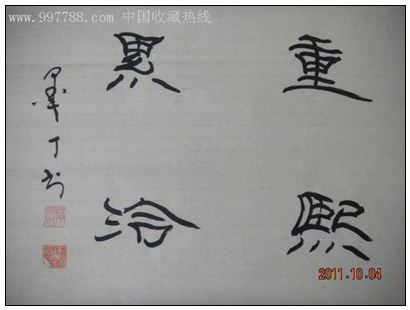 www.997788.com 中国收藏热线
重熙
累洽
墨丁书
2011.10.04